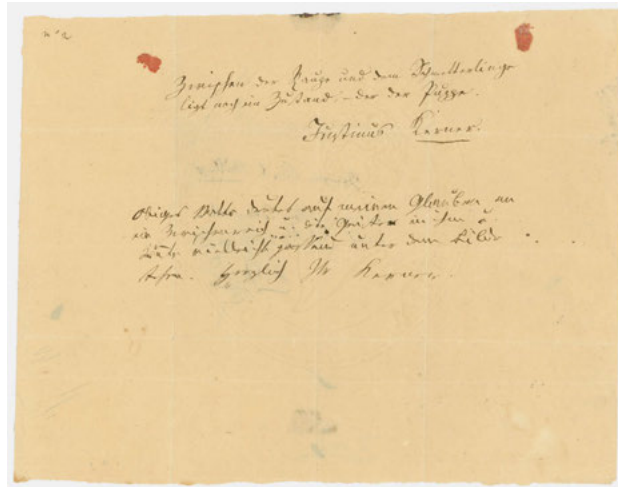 Zwischen der Raupe und dem Schmetterlinge
ligt noch ein Zustand – der der Puppe.
Justinus Kerner.
Obiges Motto deutet auf meinen Glauben an
ein Zwischenreich u: die Geister in ihm u.
vielleicht passend unter dem Bilde
stehen. Herzlich Ihr Kerner.